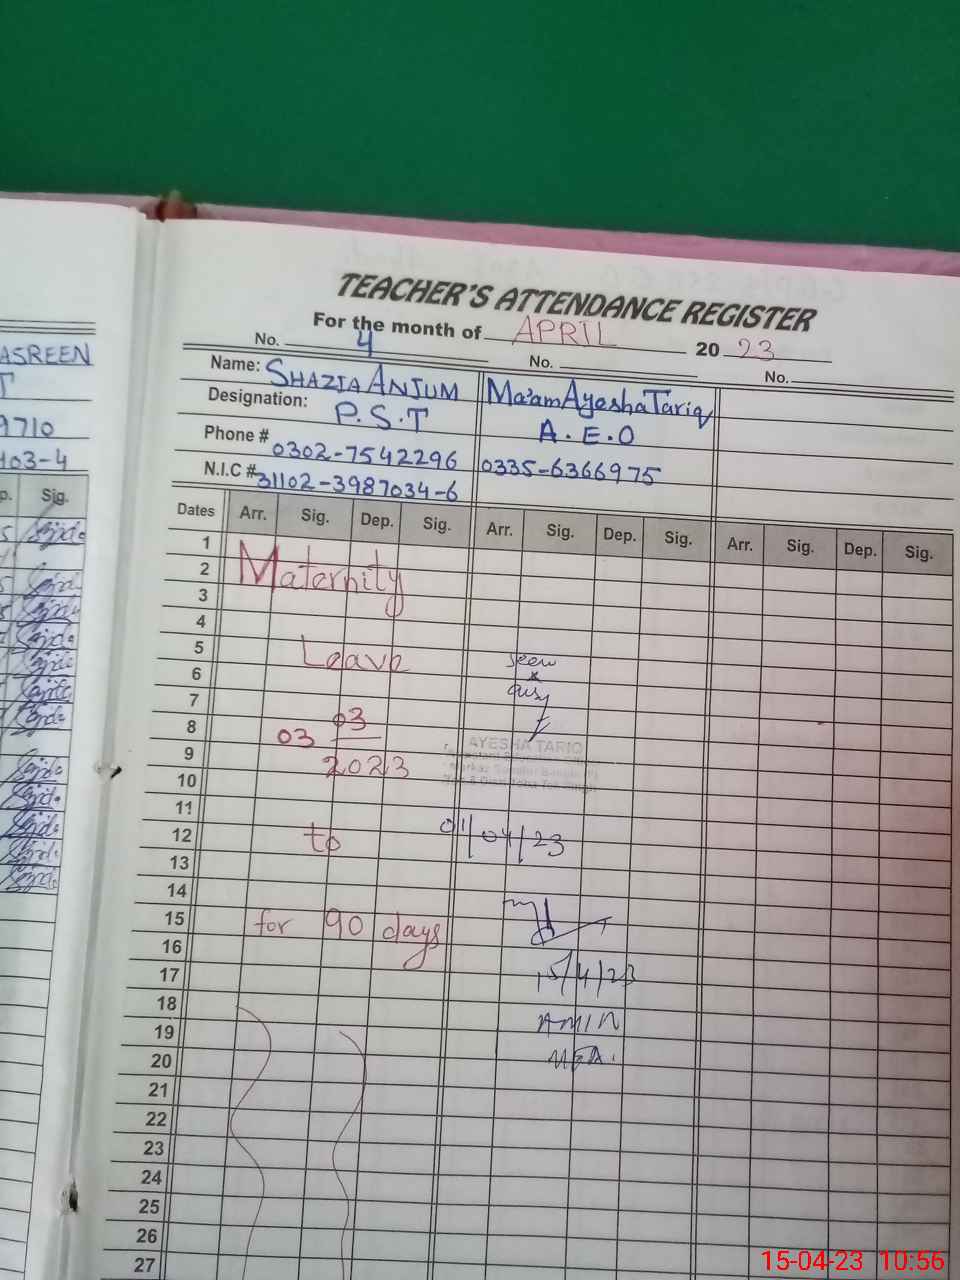 TEACHER'S ATTENDANCE REGISTER
For the month of APRIL 2023
No. 4 No. No.
Name: SHAZIA ANJUM Ma'am Ayesha Tariq
Designation: P.S.T A.E.O
Phone # 0302-7542296 0335-6366975
N.I.C # 31102-3987034-6
ASREEN
9710
103-4
p. Sig.
Dates Arr. Sig. Dep. Sig. Arr. Sig. Dep. Sig. Arr. Sig. Dep. Sig.
1
2 Maternity
3
4
5 Leave Seen
6
7
8 03 03
9 2023 AYESHA TARIQ
10
11
12 to 01/04/23
13
14
15 for 90 days
16
17 15/4/23
18
19 AMIN
20
21
22
23
24
25
26
27
15-04-23 10:56